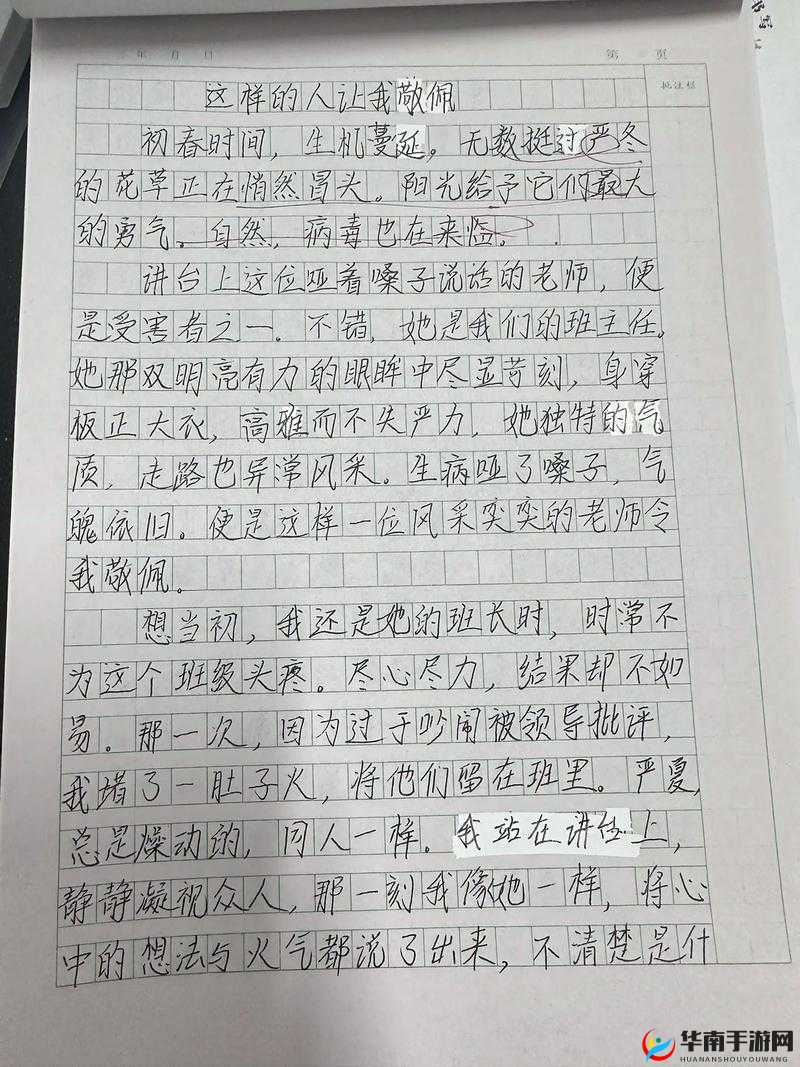 年 月 日 第 页
批注栏
这样的人让我敬佩
初春时间，生机蔓延。无数挺过严冬
的花草正在悄然冒头。阳光给予它们最大
的勇气。自然，病毒也在来临。
讲台上这位哑着嗓子说话的老师，便
是受害者之一．不错，她是我们的班主任。
她那双明亮有力的眼眸中尽显苛刻，身穿
板正大衣，高雅而不失严力，她独特的气
质，走路也异常风采。生病哑了嗓子，气
魄依旧。便是这样一位风采奕奕的老师令
我敬佩。
想当初，我还是她的班长时，时常不
为这个班级头疼。尽心尽力，结果却不如
易。那一次，因为过于吵闹被领导批评，
我堵了一肚子火，将他们留在班里。严夏，
总是燥动的，同人一样。我站在讲台上，
静静凝视众人，那一刻我像她一样，将心
中的想法与火气都说了出来，不清楚是什
华南手游网
HUANANSHOUYOUWANG